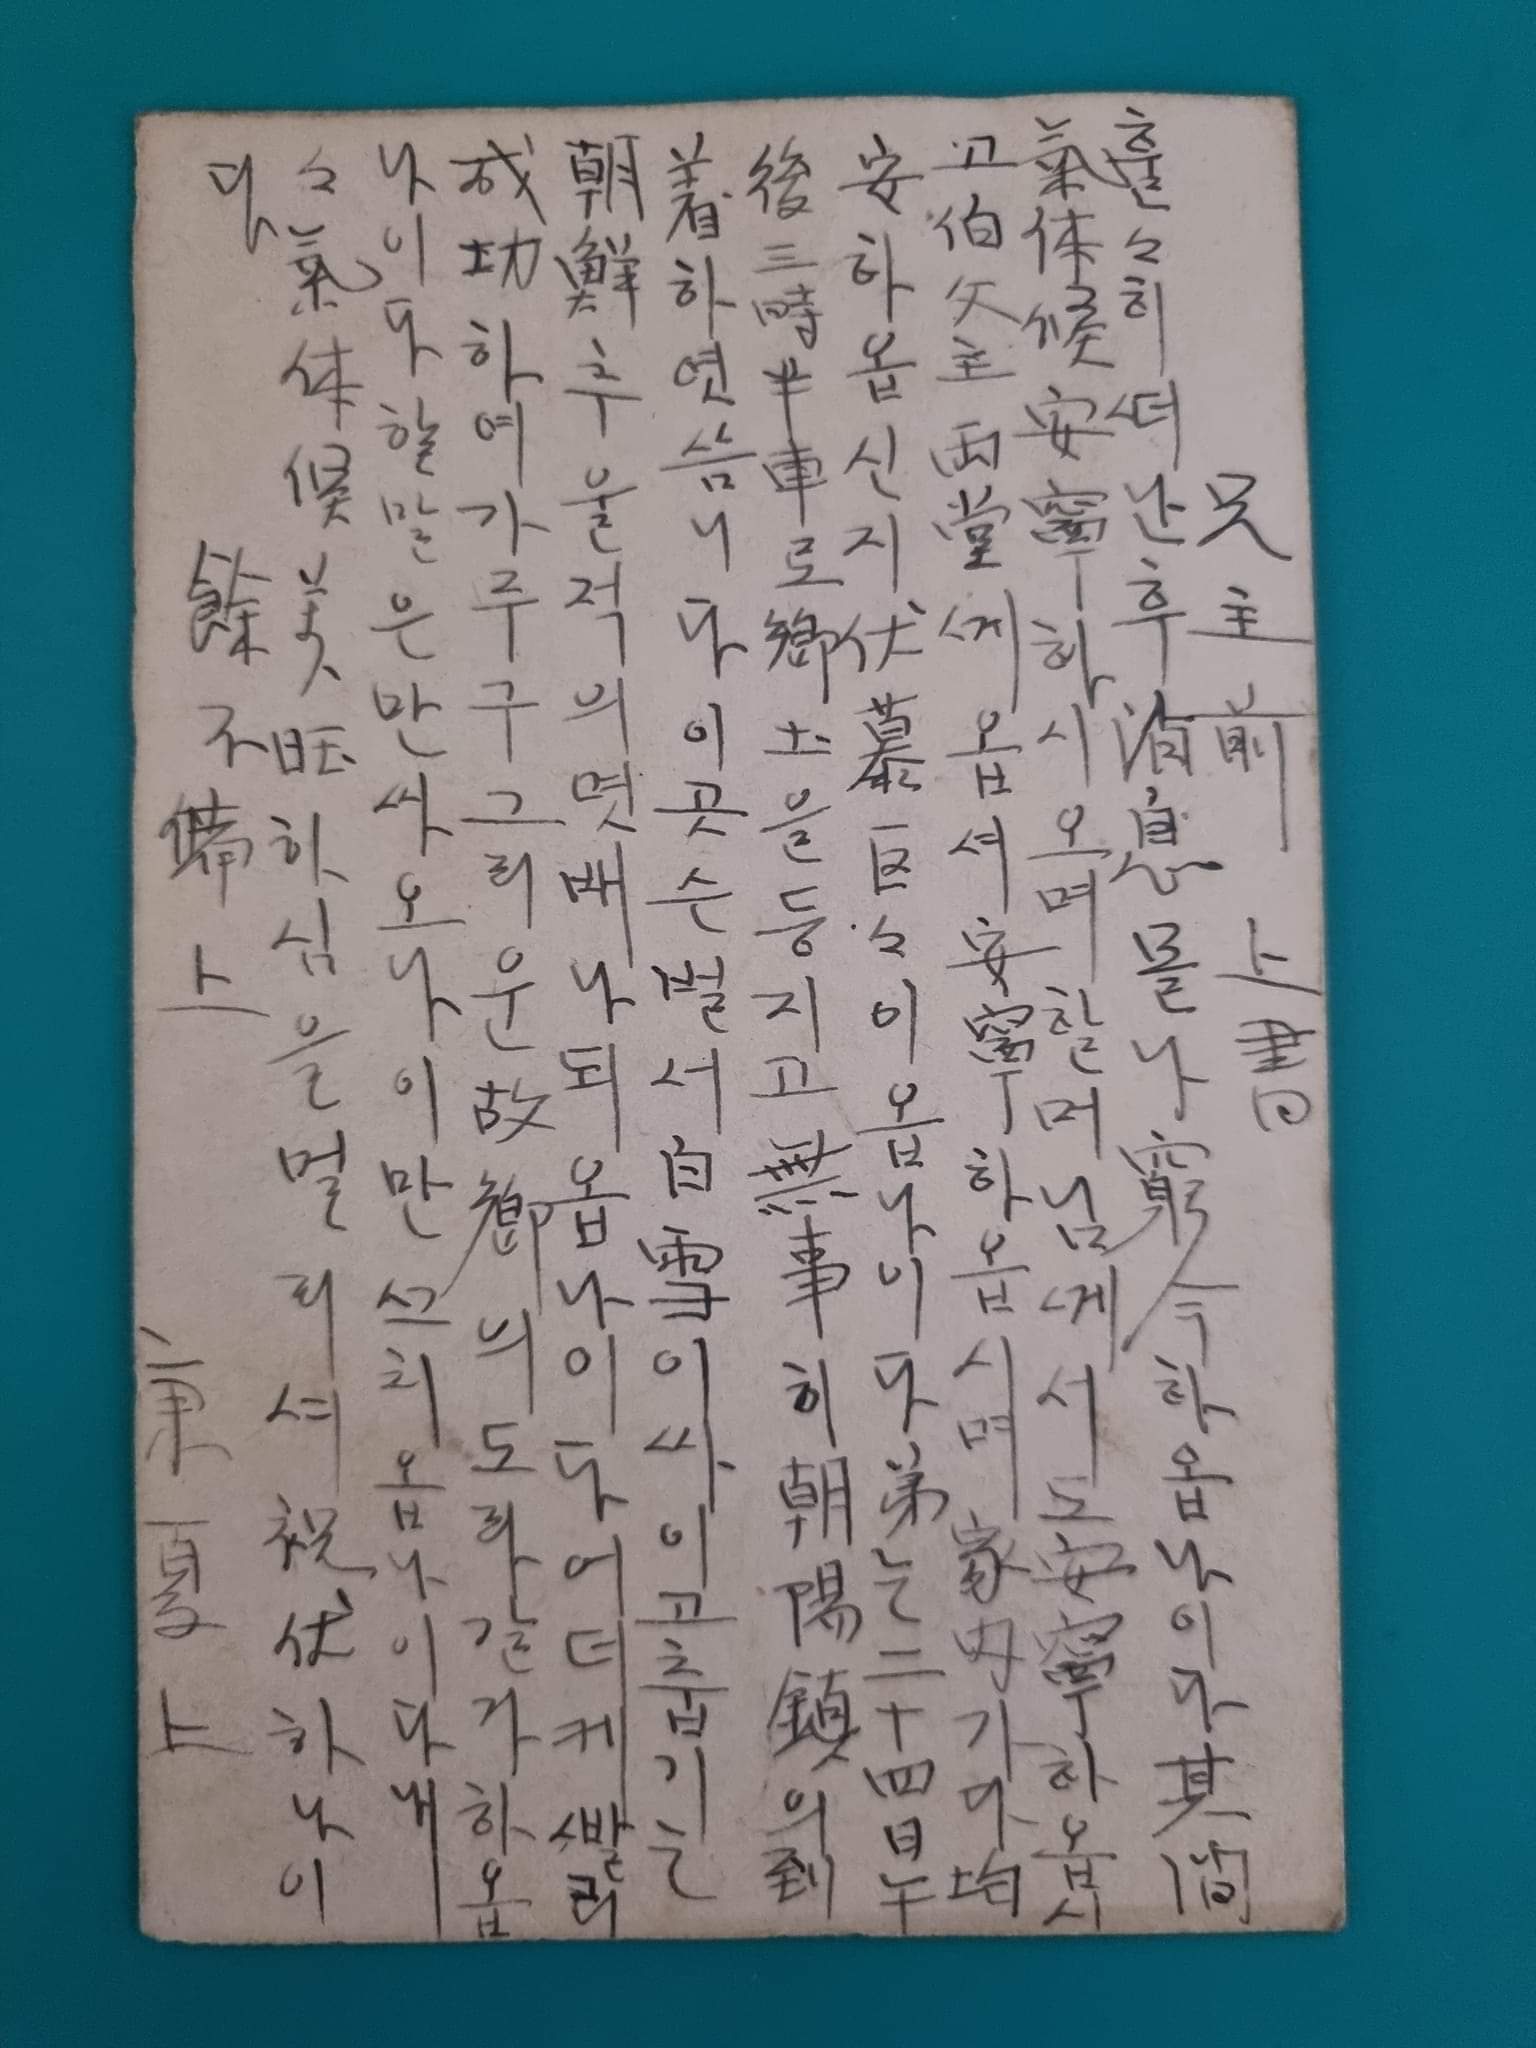 兄主前 上書
훌々히 떠난 후 消息 몰나 窮々하옵나이다 其間
氣体候安寧하시오며 할머님게서도 安寧하옵시
고 伯父主 両堂께옵셔 安寧하옵시며 家内가 다 均
安하옵신지 伏慕区々이옵나이다 弟는 二十四日 午
後 三時半車로 鄕土을 등지고 無事히 朝陽鎮의 到
着하엿슴니다 이곳슨 벌서 白雪이 싸이고 춥기는
朝鮮 추울적의 몃배나 되옵나이다 어더케 빨리
成功하여가주구 그리운 故鄕의 도라갈가 하옵
나이다 할말은 만싸오나 이만 쓰치옵나이다 내
々 氣体候 美旺하심을 멀리셔 祝伏하나이
다
餘不備上
東夏 上